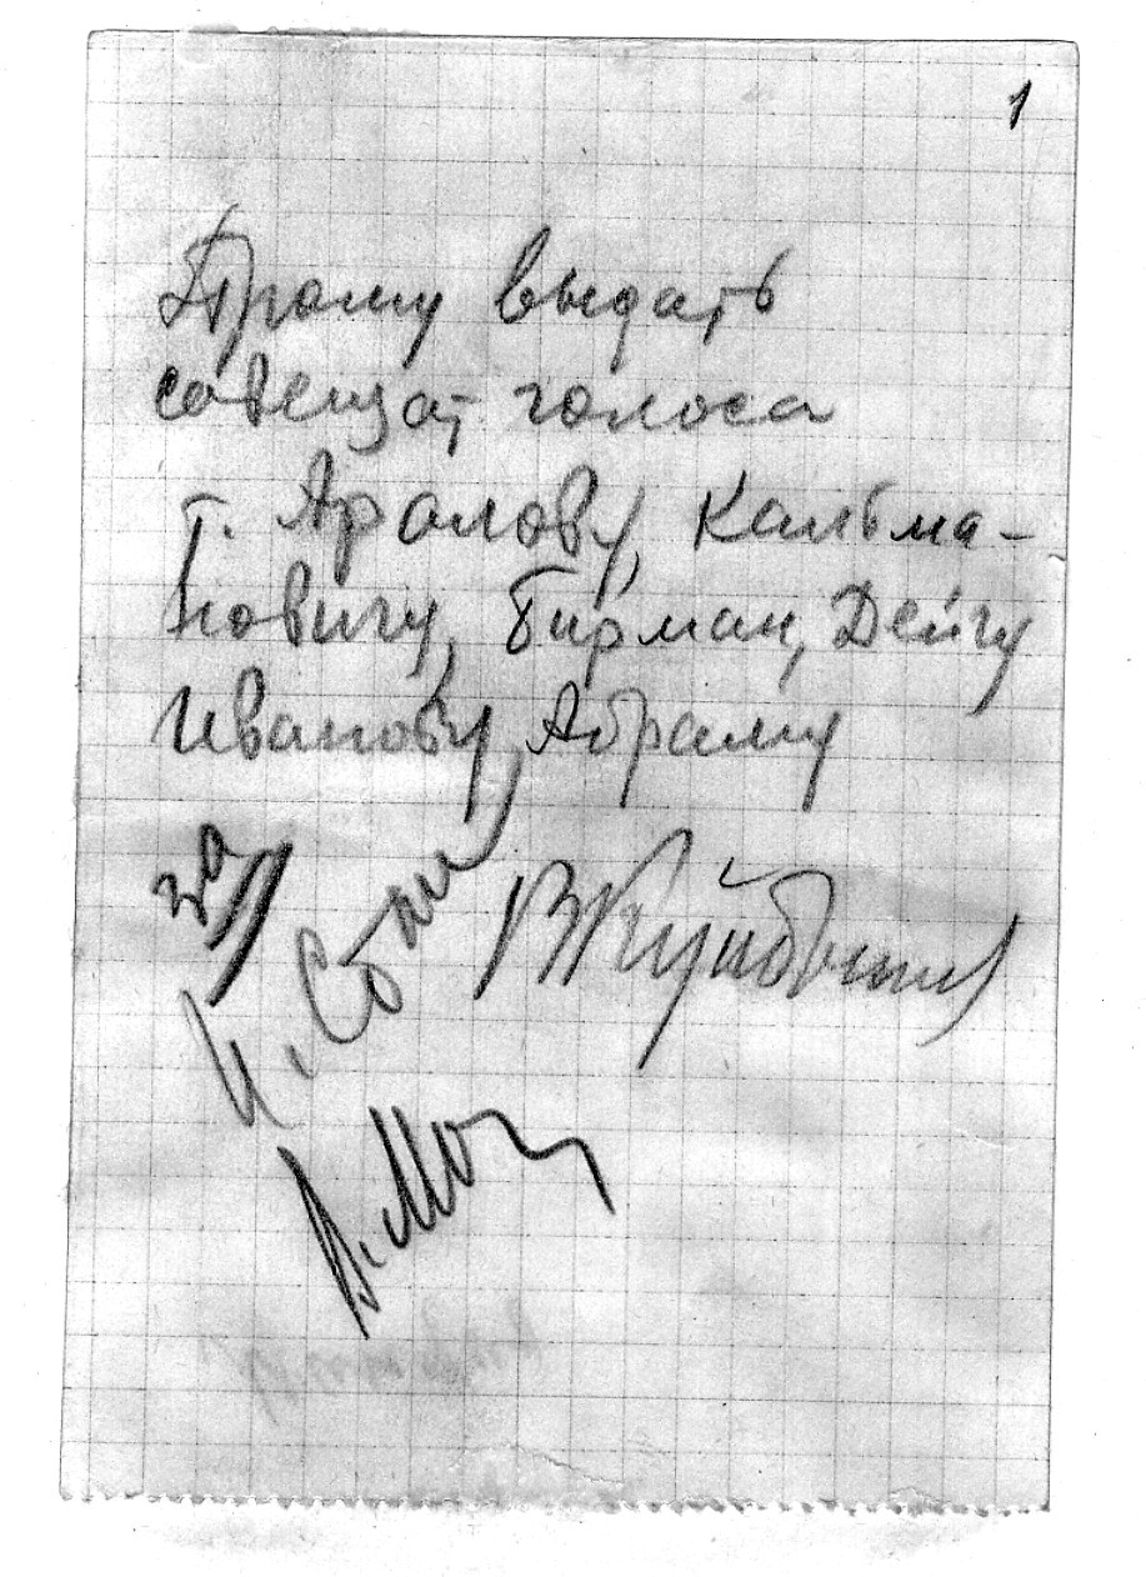 1
Прошу выдать
совещат голоса
т. Аралову, Кальма-
новичу, Бирман, Дейчу
Иванову, Абраму
за
В Куйбышев
И. Стали
В. Мол